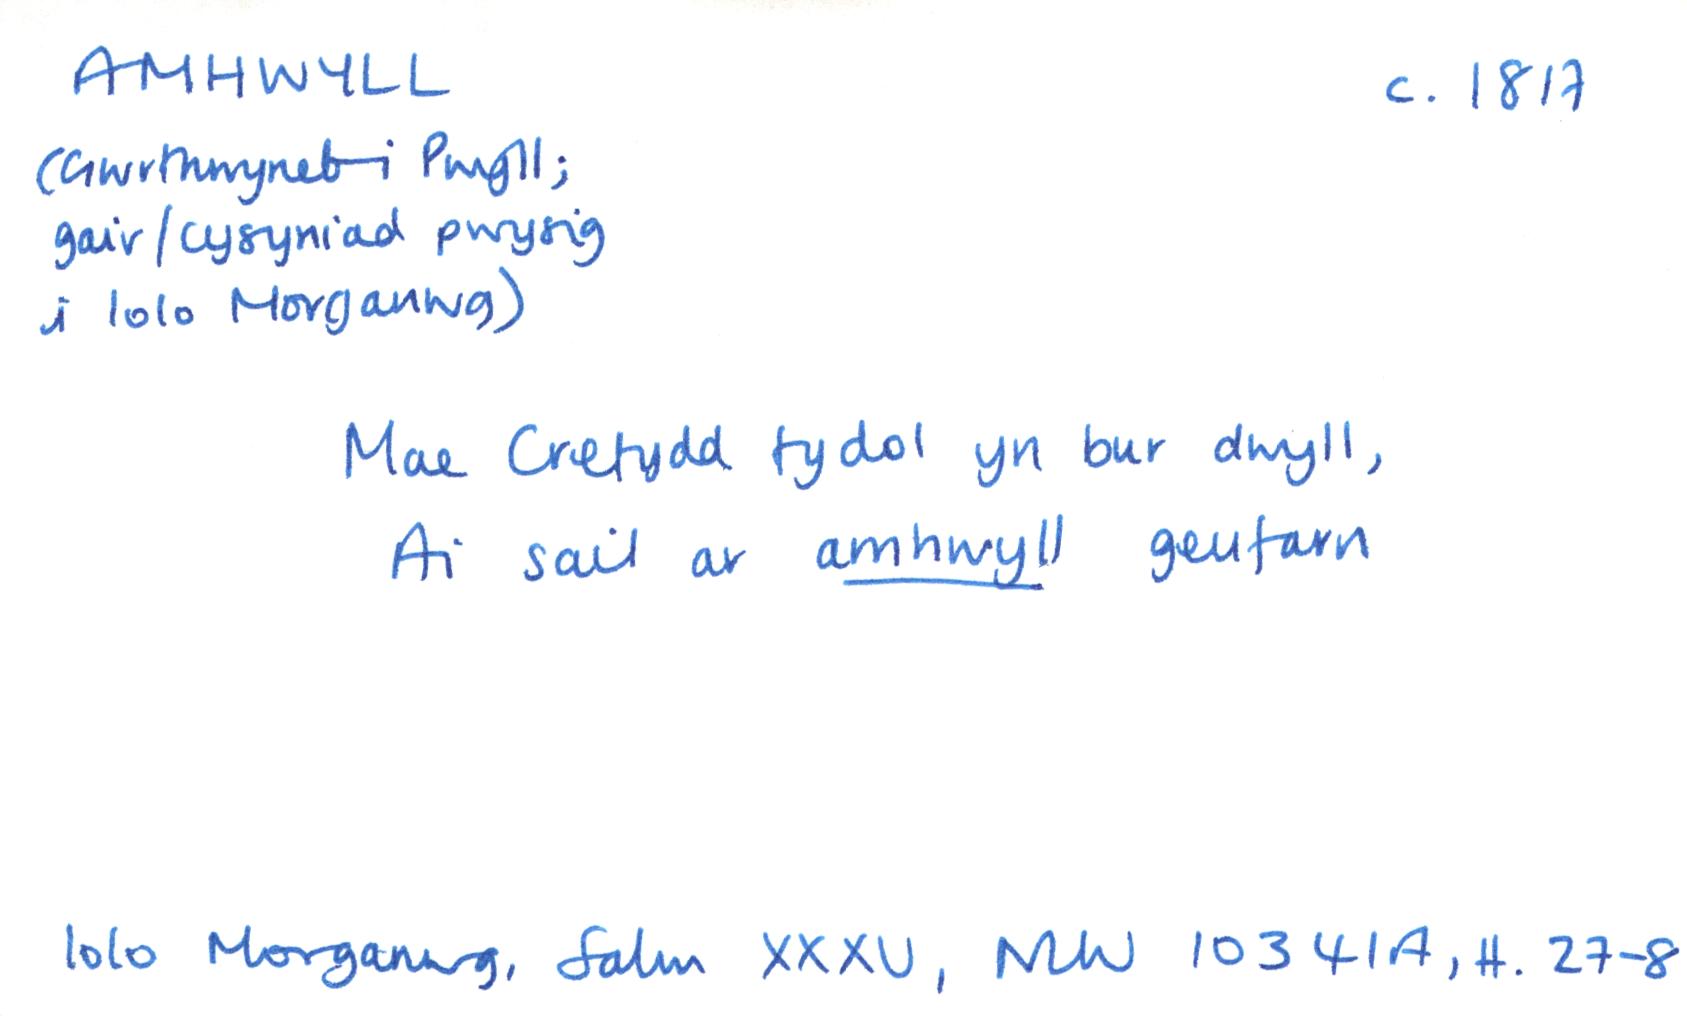 AMHWYLL
c. 1817
(Gwrthwyneb i Pwyll;
gair/cysyniad pwysig
i Iolo Morganwg)
Mae Crefydd fydol yn bur dwyll,
Ai sail ar amhwyll geufarn
Iolo Morganwg, Salm XXXV, NLW 10341A, ll. 27-8